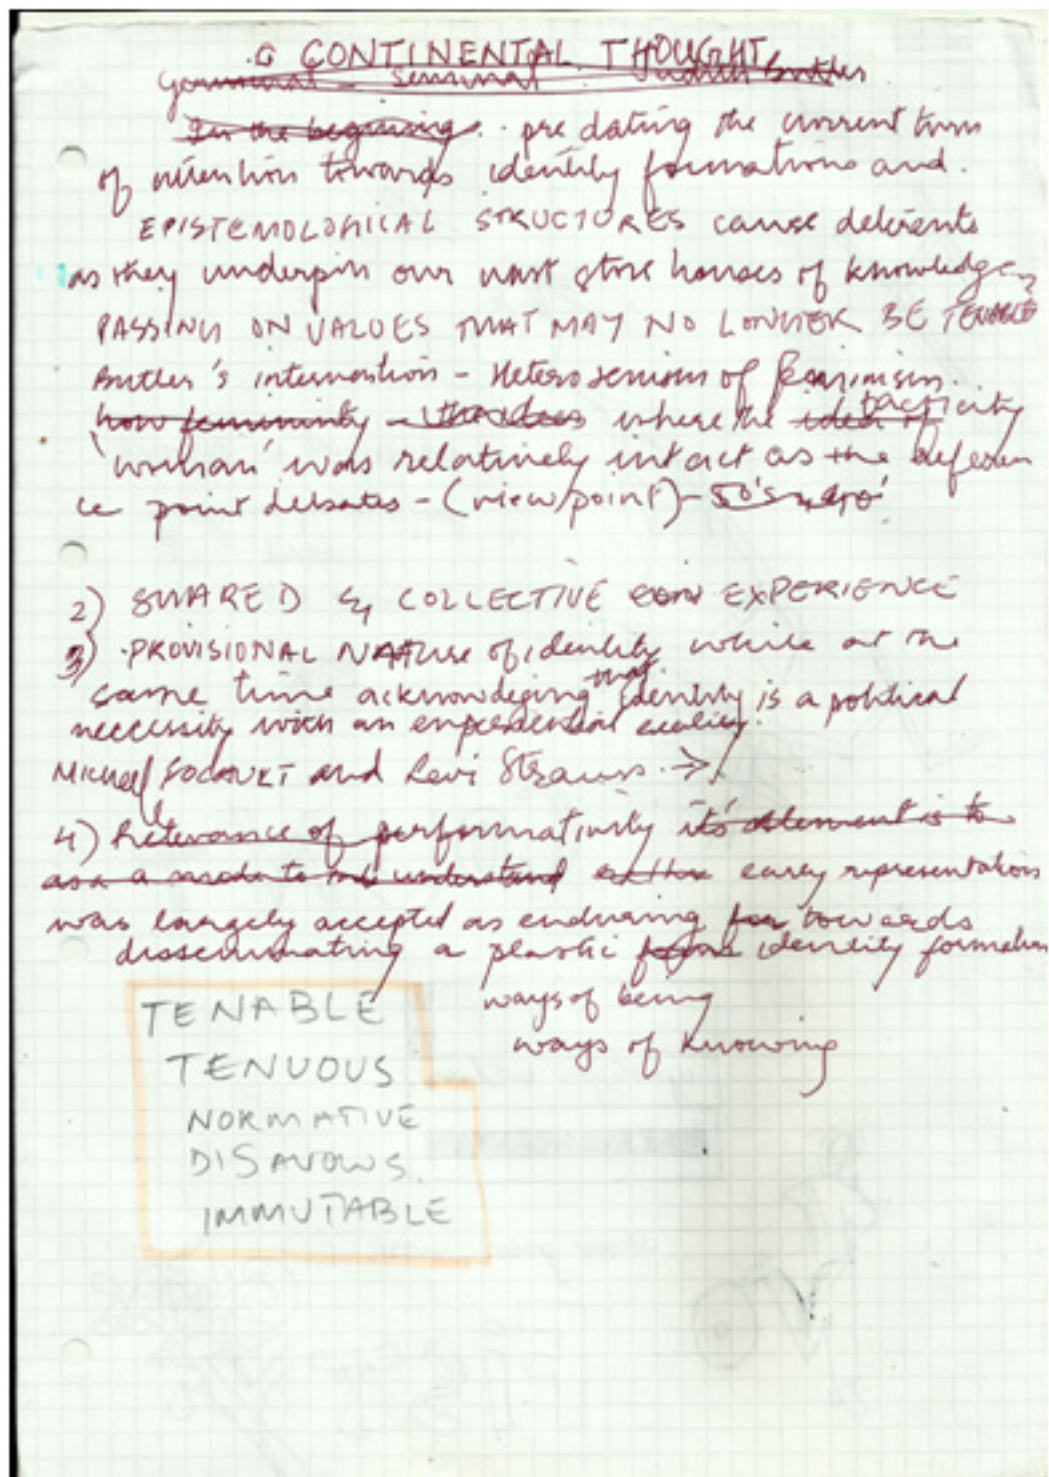 CONTINENTAL THOUGHT
Seminal Judith Butler
In the beginning. pre dating the current turn
of attention towards identity formations and.
EPISTEMOLOGICAL STRUCTURES cause
as they underpin our vast store houses of knowledge,
PASSING ON VALUES THAT MAY NO LONGER BE TENABLE
Butler's intervention - Heterosexism of feminism.
how femininity - the idea where the idea of facticity
'woman' was relatively intact as the referen
ce point debates - (view/point) - 50's
2) SHARED & COLLECTIVE EXPERIENCE
3) PROVISIONAL NATURE of identity while at the
same time acknowdeging that identity is a political
necessity with an experiential reality.
Michael and Levi Strauss. →
4) Relevance of performativity its is to
as a mode to understand early representations
was largely accepted as enduring for towards
disseminating a plastic identity formation
ways of being
ways of knowing
TENABLE
TENUOUS
NORMATIVE
DISAVOWS.
IMMUTABLE